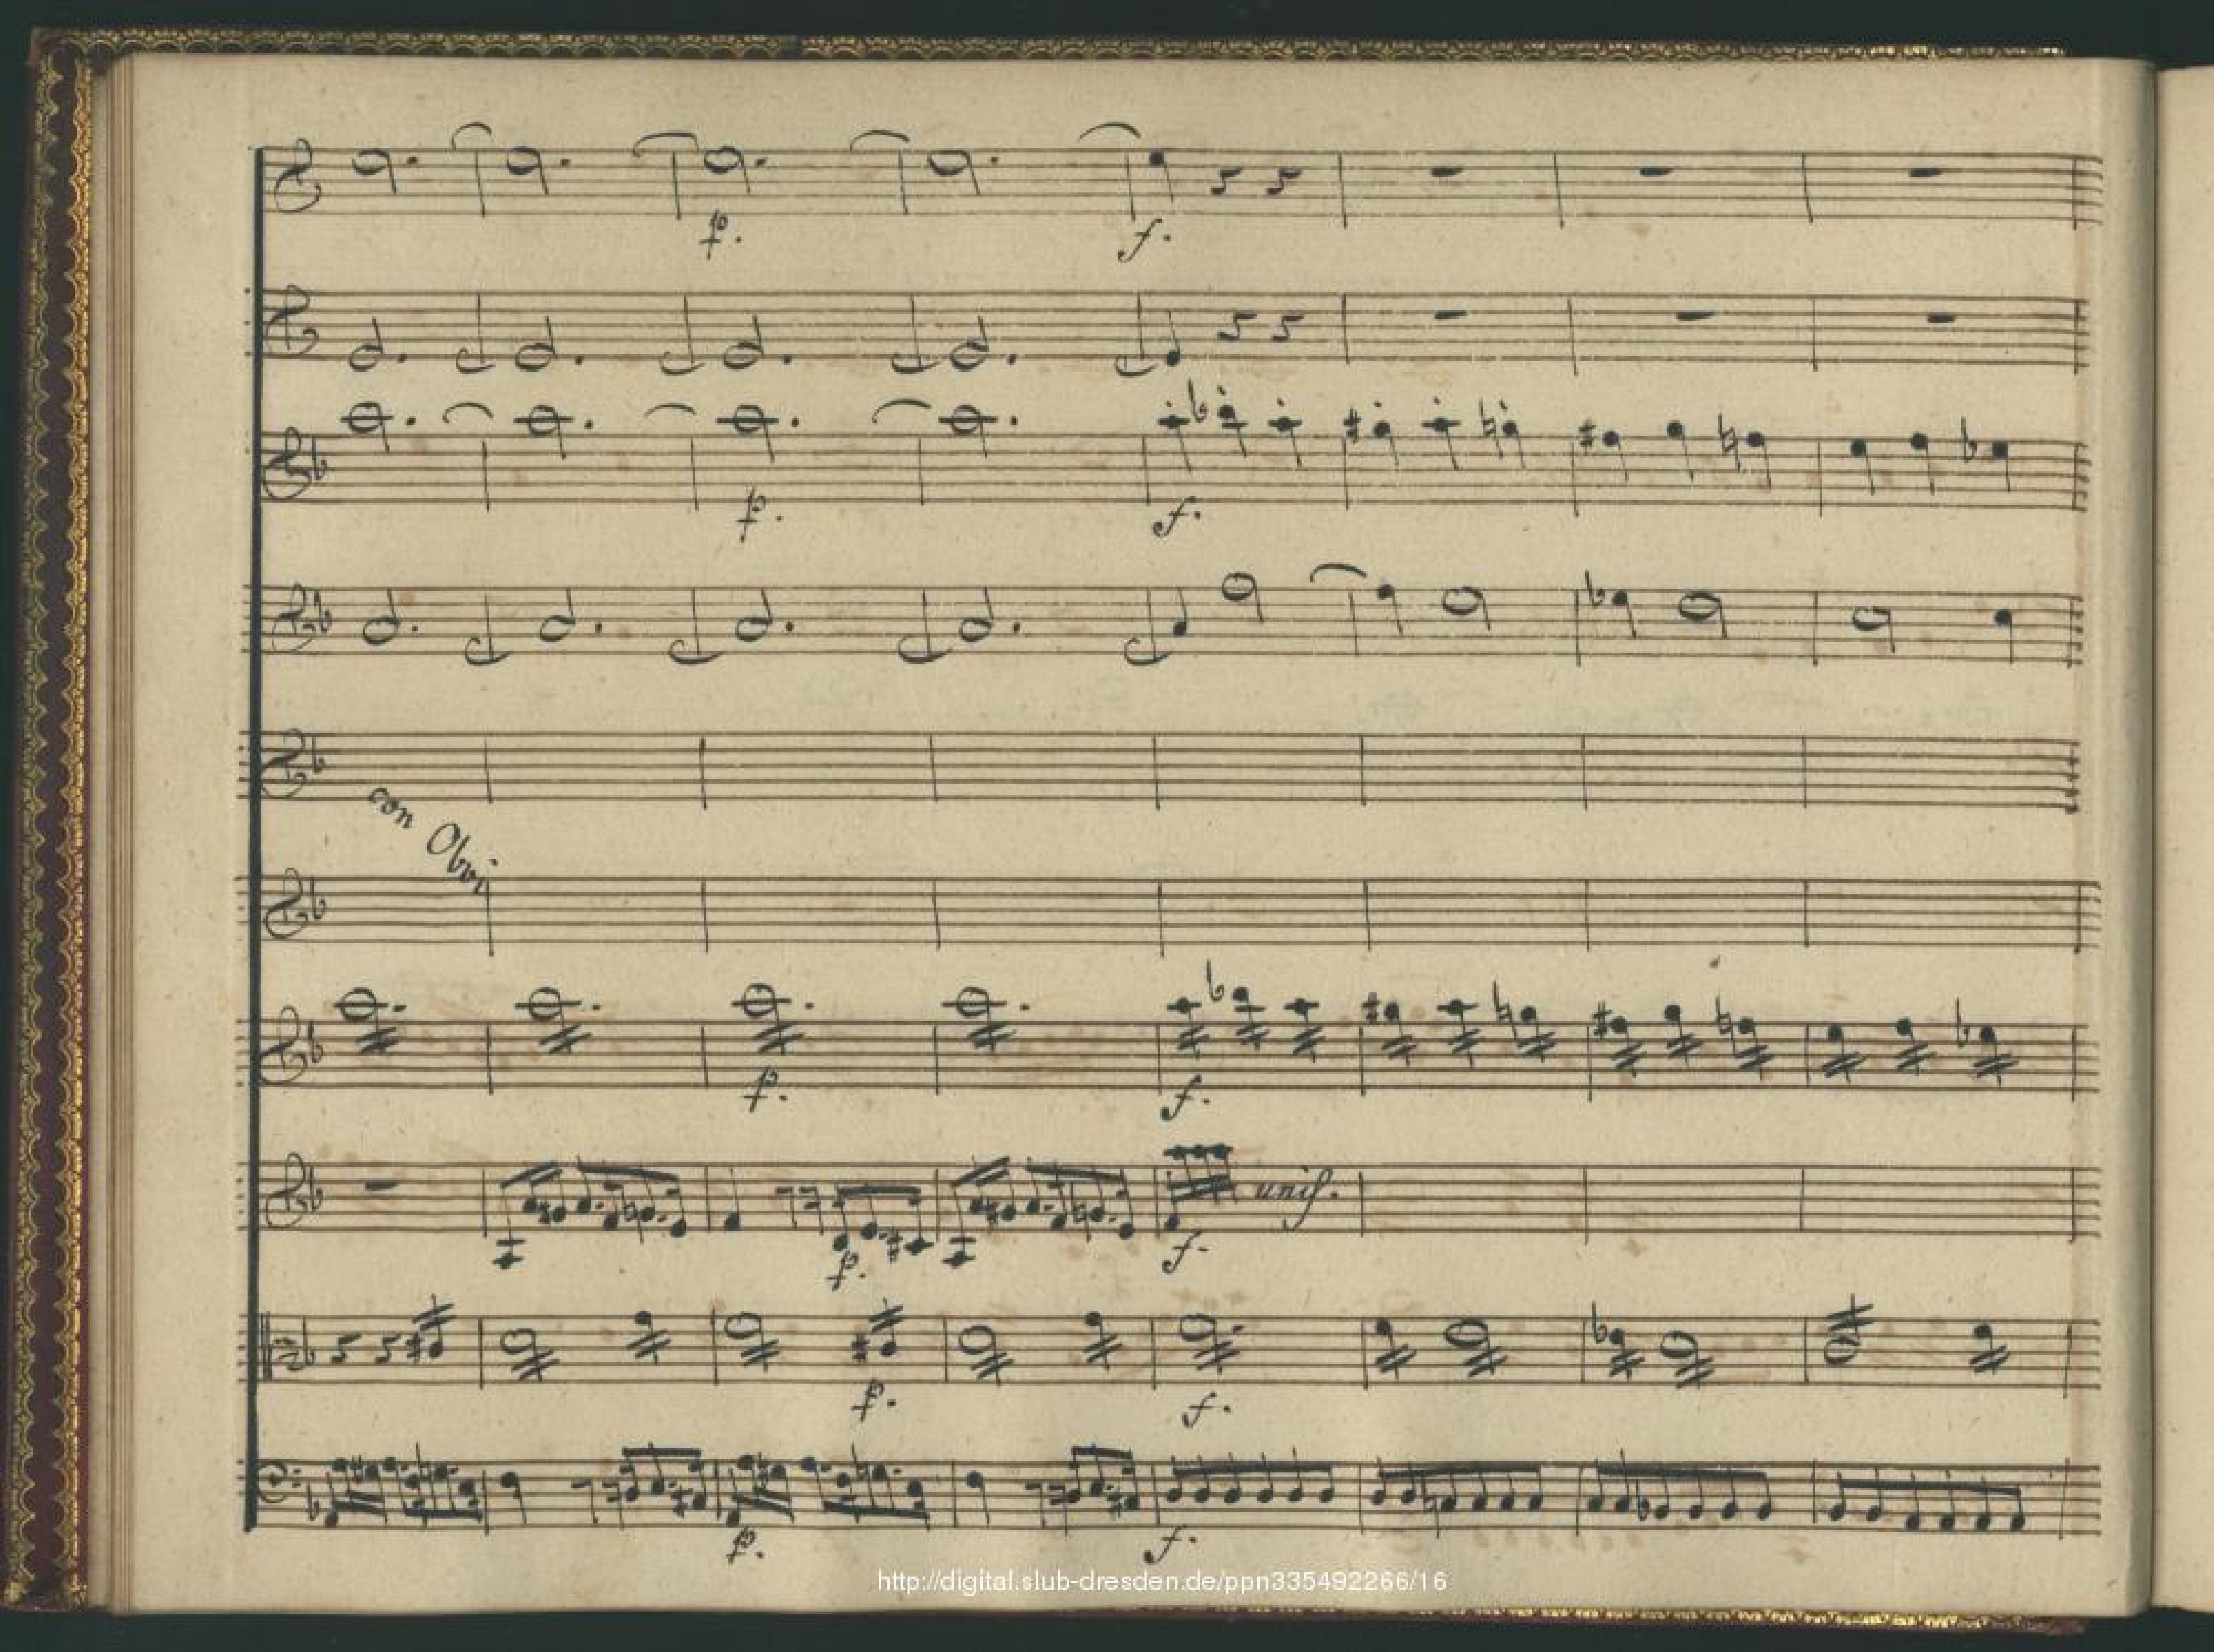 p. f.
p. f.
con Oboi
p. f.
p. f. unis.
p. f.
p. f.
http://digital.slub-dresden.de/ppn335492266/16